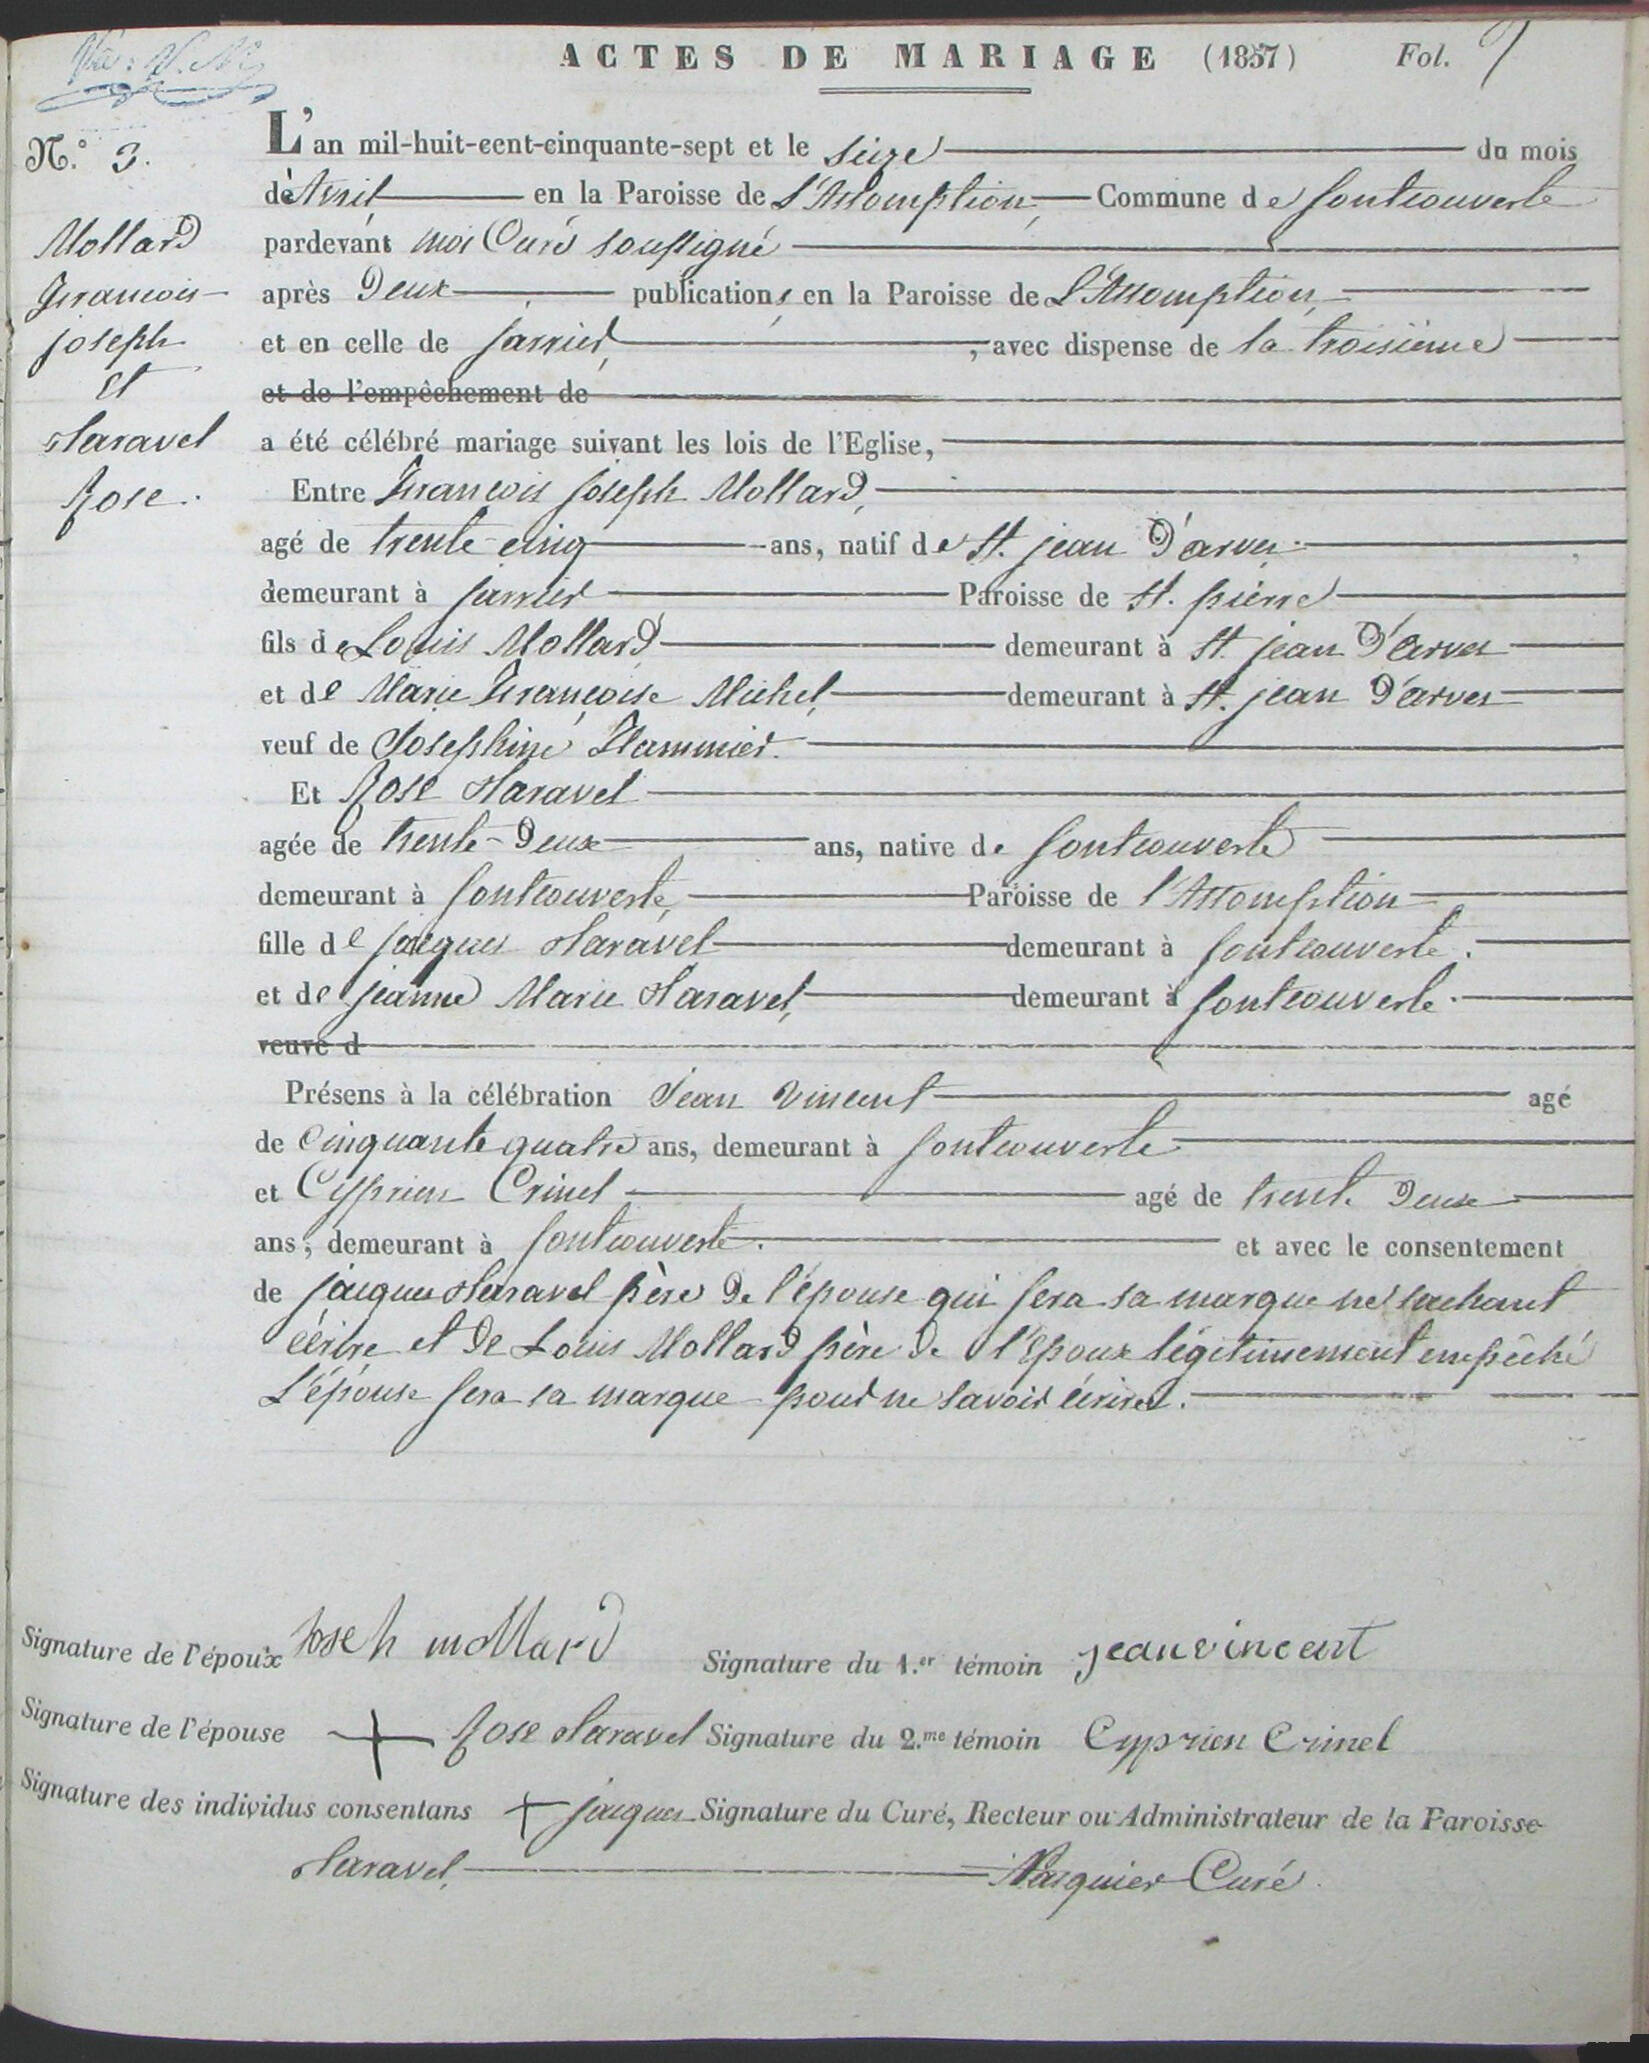 ACTES DE MARIAGE (1857) Fol.
N.o 3.
Mollard
François
joseph
et
Naravel
Rose.
L'an mil-huit-cent-cinquante-sept et le seize du mois
d'Avril en la Paroisse de L'Assomption, Commune de fontcouverte
pardevant moi Curé soussigné
après Deux publications, en la Paroisse de L'Assomption,
et en celle de jarrier, avec dispense de la troisième
et de l'empêchement de
a été célébré mariage suivant les lois de l'Eglise,
Entre François joseph Mollard,
agé de trente cinq ans, natif de St. jean D'arves.
demeurant à jarrier Paroisse de St. pierre
fils de Louis Mollard demeurant à St. jean D'arves
et de Marie Françoise Michel, demeurant à St. jean D'arves
veuf de Josephine
Et Rose Naravel
agée de trente-Deux ans, native de fontcouverte
demeurant à fontcouverte, Paroisse de l'Assomption
fille de jacques Naravel demeurant à fontcouverte.
et de jeanne Marie Naravel, demeurant à fontcouverte.
veuve d
Présens à la célébration Jean Vincent agé
de Cinquante quatre ans, demeurant à fontcouverte
et Cyprien Crinel agé de trente Deux
ans, demeurant à fontcouverte. et avec le consentement
de jacques Naravel père De l'épouse qui fera sa marque ne sachant
écrire et De Louis Mollard père De l'Epoux légitimement empêché
L'épouse fera sa marque pour ne savoir écrire.
Signature de l'époux Joseh mollard Signature du 1.er témoin jean vincent
Signature de l'épouse + Rose Naravel Signature du 2.me témoin Cyprien Crinel
Signature des individus consentans + jacques Signature du Curé, Recteur ou Administrateur de la Paroisse
Naravel, Pasquier Curé.